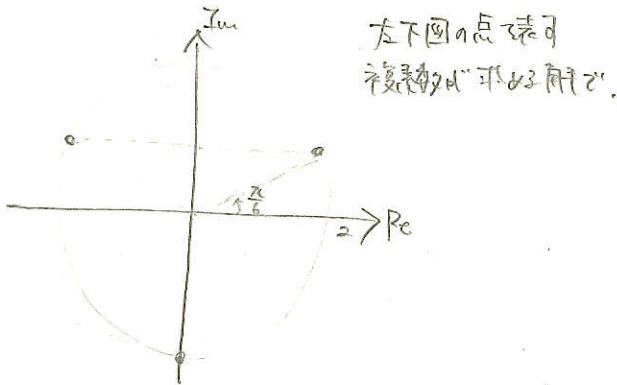 Im
左下図の点で表す
複素数が求める解で.
π/6
2
Re